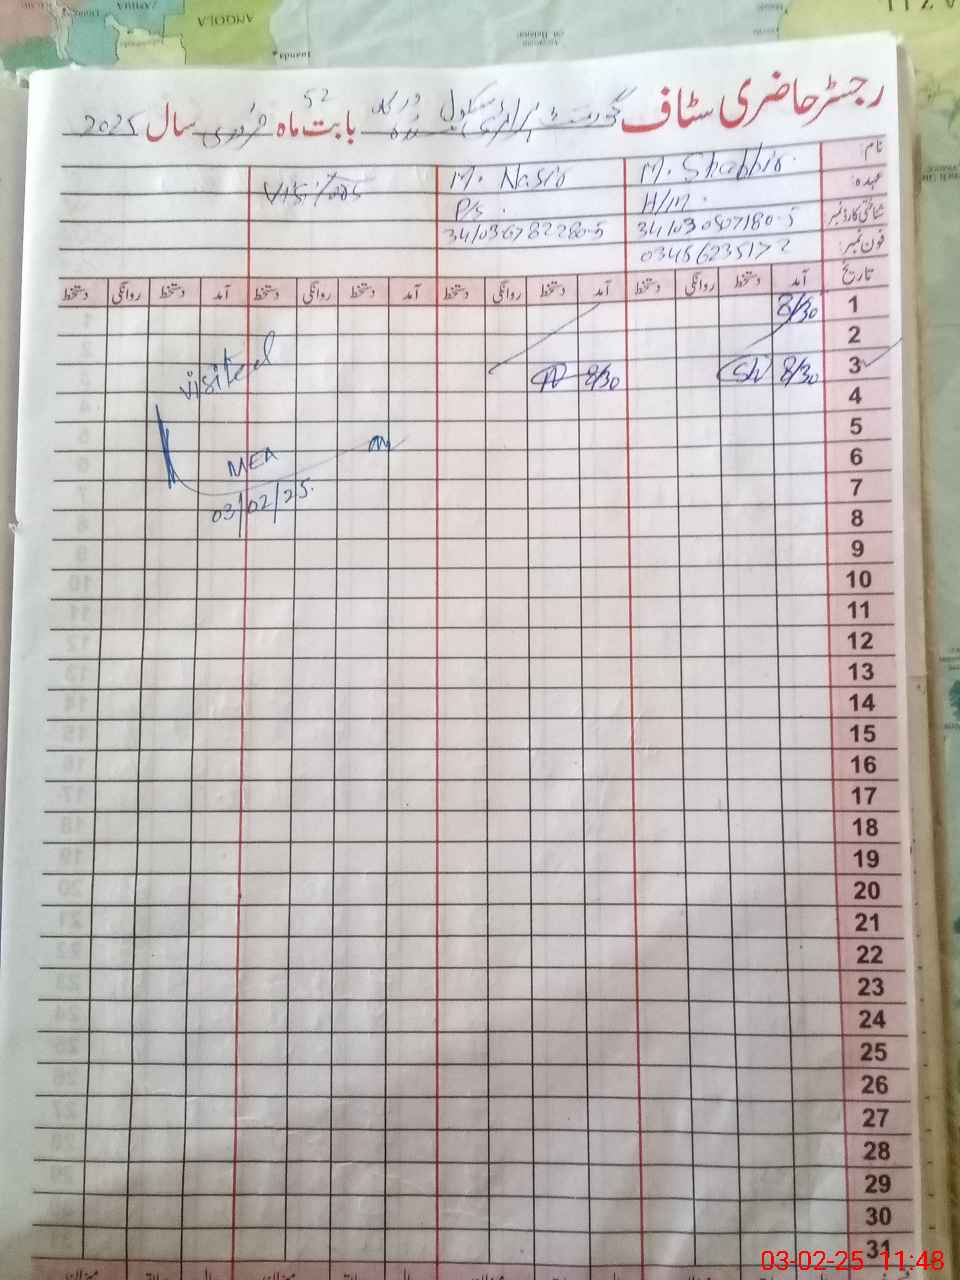 ANGOLA
Luanda
رجسٹر حاضری سٹاف گورنمنٹ پرائمری سکول بابت ماہ فروری سال 2025
52
نام: M. Shabbir. M. Nasir Visitors
عہدہ: H/M. P/S.
شناختی کارڈ نمبر
فون نمبر:
تاریخ آمد دستخط روانگی دستخط آمد دستخط روانگی دستخط آمد دستخط روانگی دستخط آمد دستخط روانگی دستخط
1 8/30
2
3 8/30 8/30
visited
4
5
6
MEA
7
03/02/25.
8
9
10
11
12
13
14
15
16
17
18
19
20
21
22
23
24
25
26
27
28
29
30
31
03-02-25 11:48